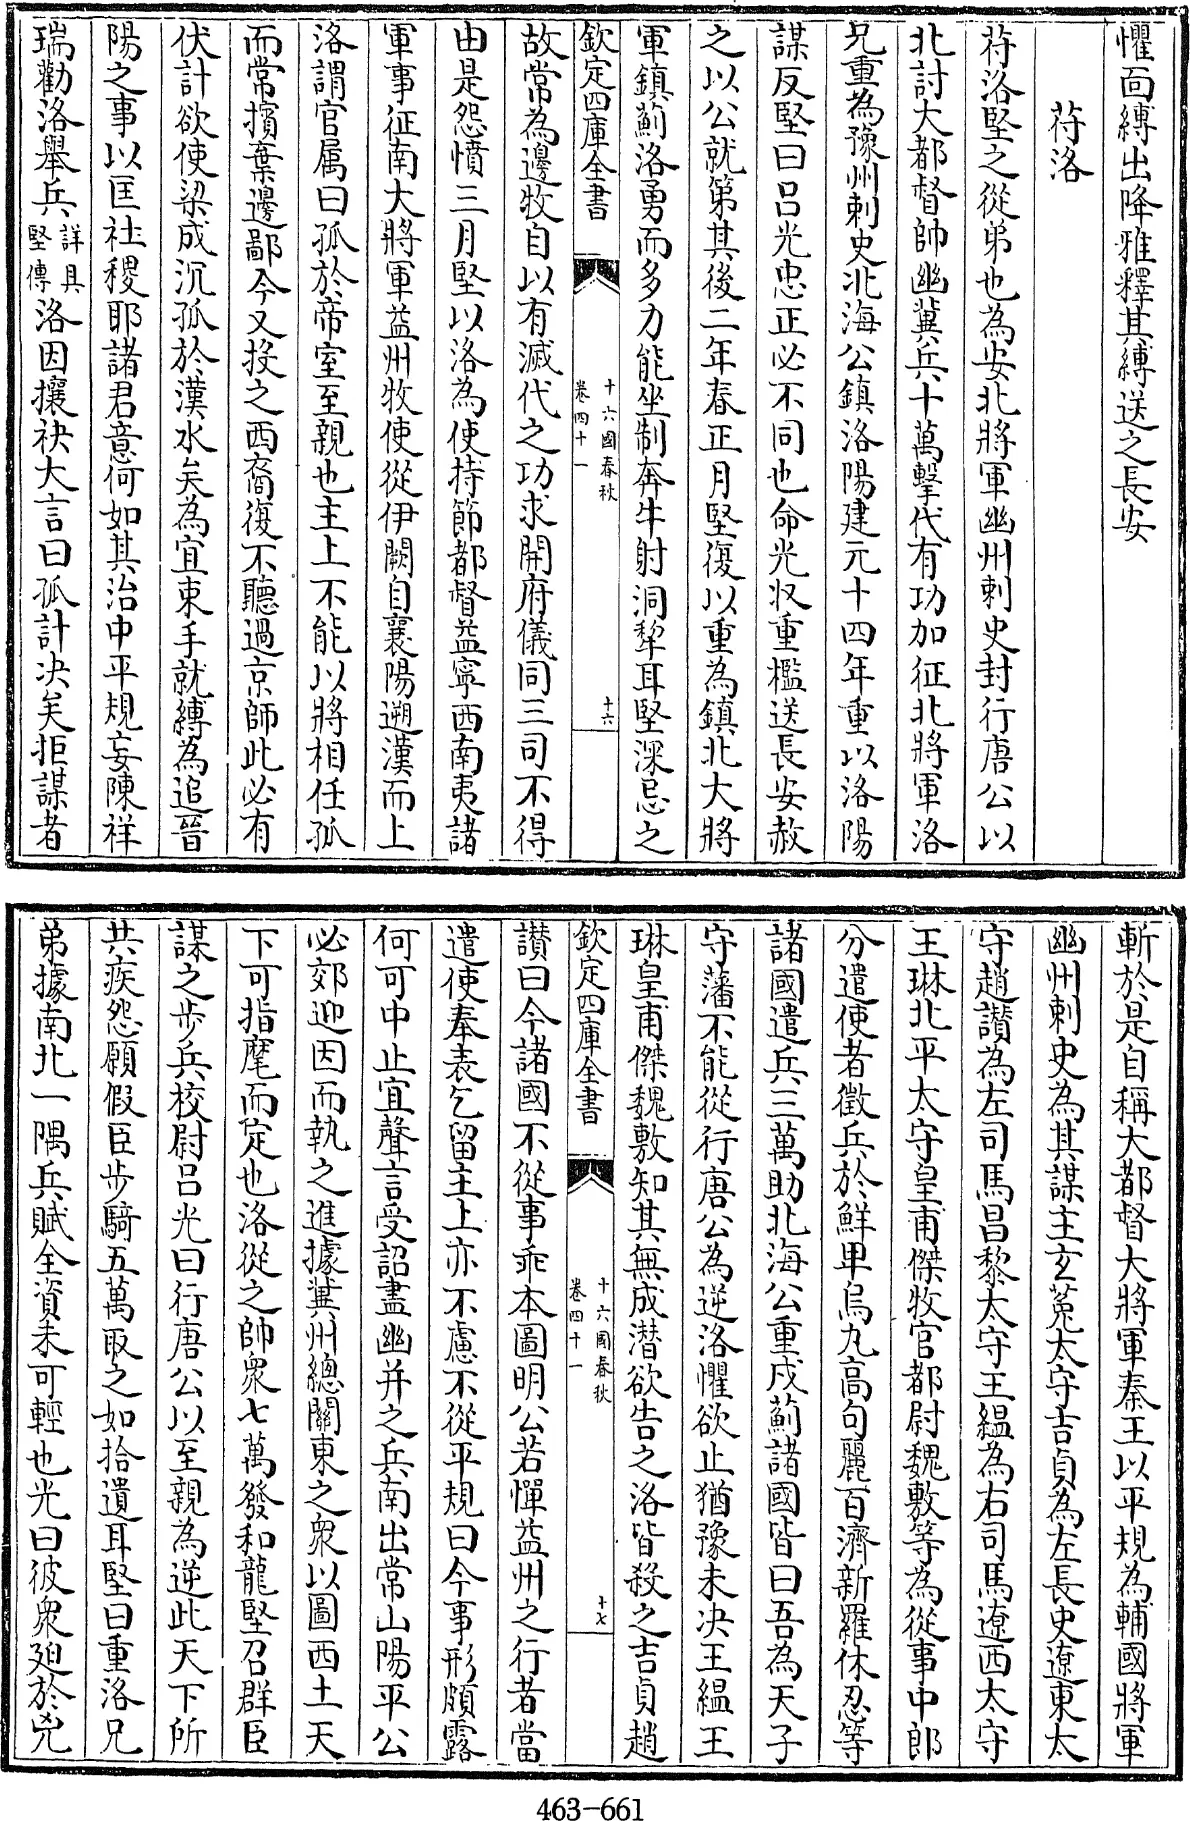 懼面縛出降雅釋其縛送之長安
苻洛
苻洛堅之從弟也為安北將軍幽州刺史封行唐公以
北討大都督帥幽冀兵十萬擊代有功加征北將軍洛
兄重為豫州刺史北海公鎮洛陽建元十四年重以洛陽
謀反堅曰呂光忠正必不同也命光收重檻送長安赦
之以公就第其後二年春正月堅復以重為鎮北大將
軍鎮薊洛勇而多力能坐制奔牛射洞犂耳堅深忌之
欽定四庫全書
十六國春秋
卷四十一
十六
故常為邊牧自以有滅代之功求開府儀同三司不得
由是怨憤三月堅以洛為使持節都督益寧西南夷諸
軍事征南大將軍益州牧使從伊闕自襄陽遡漢而上
洛謂官属曰孤於帝室至親也主上不能以將相任孤
而常擯棄邊鄙今又投之西裔復不聽過京師此必有
伏計欲使梁成沉孤於漢水矣為宜束手就縛為追晉
陽之事以匡社稷耶諸君意何如其治中平規妄陳祥
瑞勸洛舉兵詳具堅傳洛因攘袂大言曰孤計决矣拒謀者
斬於是自稱大都督大將軍秦王以平規為輔國將軍
幽州刺史為其謀主玄菟太守吉貞為左長史遼東太
守趙讃為左司馬昌黎太守王緼為右司馬遼西太守
王琳北平太守皇甫傑牧官都尉魏敷等為從事中郎
分遣使者徵兵於鮮卑烏丸高句麗百濟新羅休忍等
諸國遣兵三萬助北海公重戍薊諸國皆曰吾為天子
守藩不能從行唐公為逆洛懼欲止猶豫未决王緼王
琳皇甫傑魏敷知其無成潜欲告之洛皆殺之吉貞趙
欽定四庫全書
十六國春秋
卷四十一
十七
讃曰今諸國不從事乖本圖明公若憚益州之行者當
遣使奉表乞留主上亦不慮不從平規曰今事形頗露
何可中止宜聲言受詔盡幽并之兵南出常山陽平公
必郊迎因而執之進據冀州總關東之衆以圖西土天
下可指麾而定也洛從之帥衆七萬發和龍堅召群臣
謀之步兵校尉呂光曰行唐公以至親為逆此天下所
共疾怨願假臣步騎五萬取之如拾遺耳堅曰重洛兄
弟據南北一隅兵賦全資未可輕也光曰彼衆廹於兇
463-661